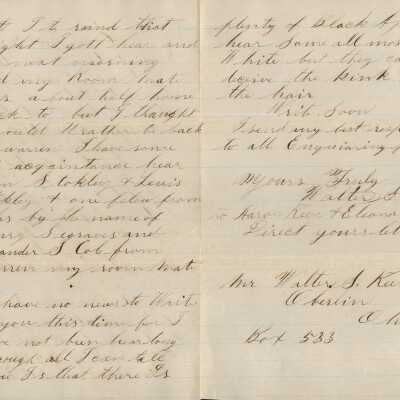 t I to raind that
ght I gott hear and
next morning
d my Room mate
s a bout half homce
k to but I thaught
outd Wrather to back
warren I have Some
acqaintance hear
n Stokley & Louis
kley & one felow from
as by the name of
nry Segraves and
ander S Cob from
rren my room mate
have no news to Write
you this time for I
ve not bun hear long
ough all I can tell
u Is that there Is
plenty of black
hear Some all mos
White but they ca
the hair
Writ Soon
I send my best resp
to all Enquiaring f
Yours Truly
Walter S
to Aaron &
Direct yours let
Mr Walter S.
Oberlin
O
Box 533